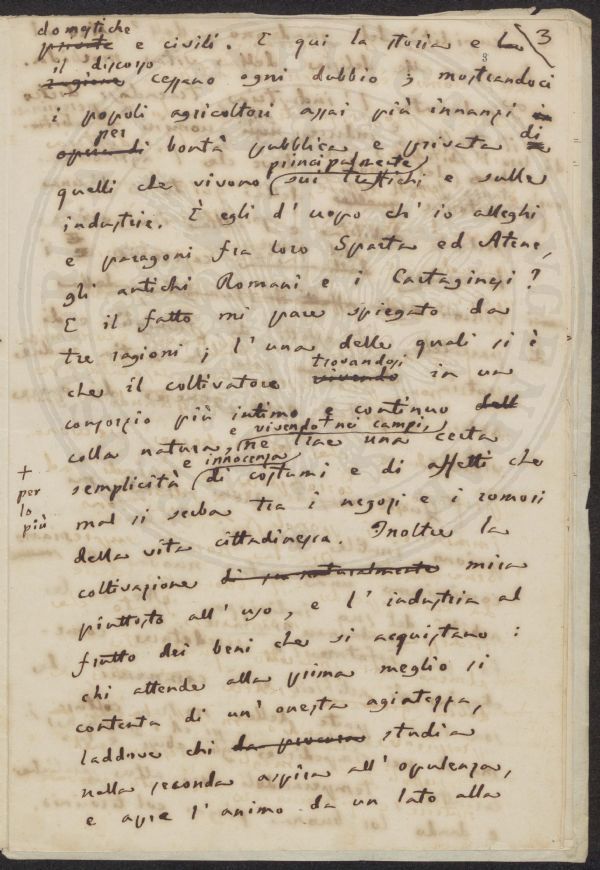 domestiche 3
private e civili. E qui la storia e la
il discorso
ragione cessano ogni dubbio; mostrandoci
i popoli agricoltori assai più innanzi in
per di
opera di bontà pubblica e privata
principalmente
quelli che vivono sui traffichi e sulle
industrie. È egli d'uopo ch'io alleghi
e paragoni fra loro Sparta ed Atene,
gli antichi Romani e i Cartaginesi?
E il fatto mi pare spiegato da
tre ragioni; l'una delle quali si è
trovandosi
che il coltivatore vivendo in un
consorzio più intimo e continuo dell
e vivendo + nei campi,
colla natura, ne trae una certa
e innocenza
semplicità di costumi e di affetti che
+
per
lo
più
mal si serba tra i negozi e i romori
della vita cittadinesca. Inoltre la
coltivazione di su naturalmente mira
piuttosto all'uso, e l'industria al
frutto dei beni che si acquistano:
chi attende alla prima meglio si
contenta di un'onesta agiatezza,
laddove chi da procura studia
nella seconda aspira all'opulenza,
e apre l'animo da un lato alla